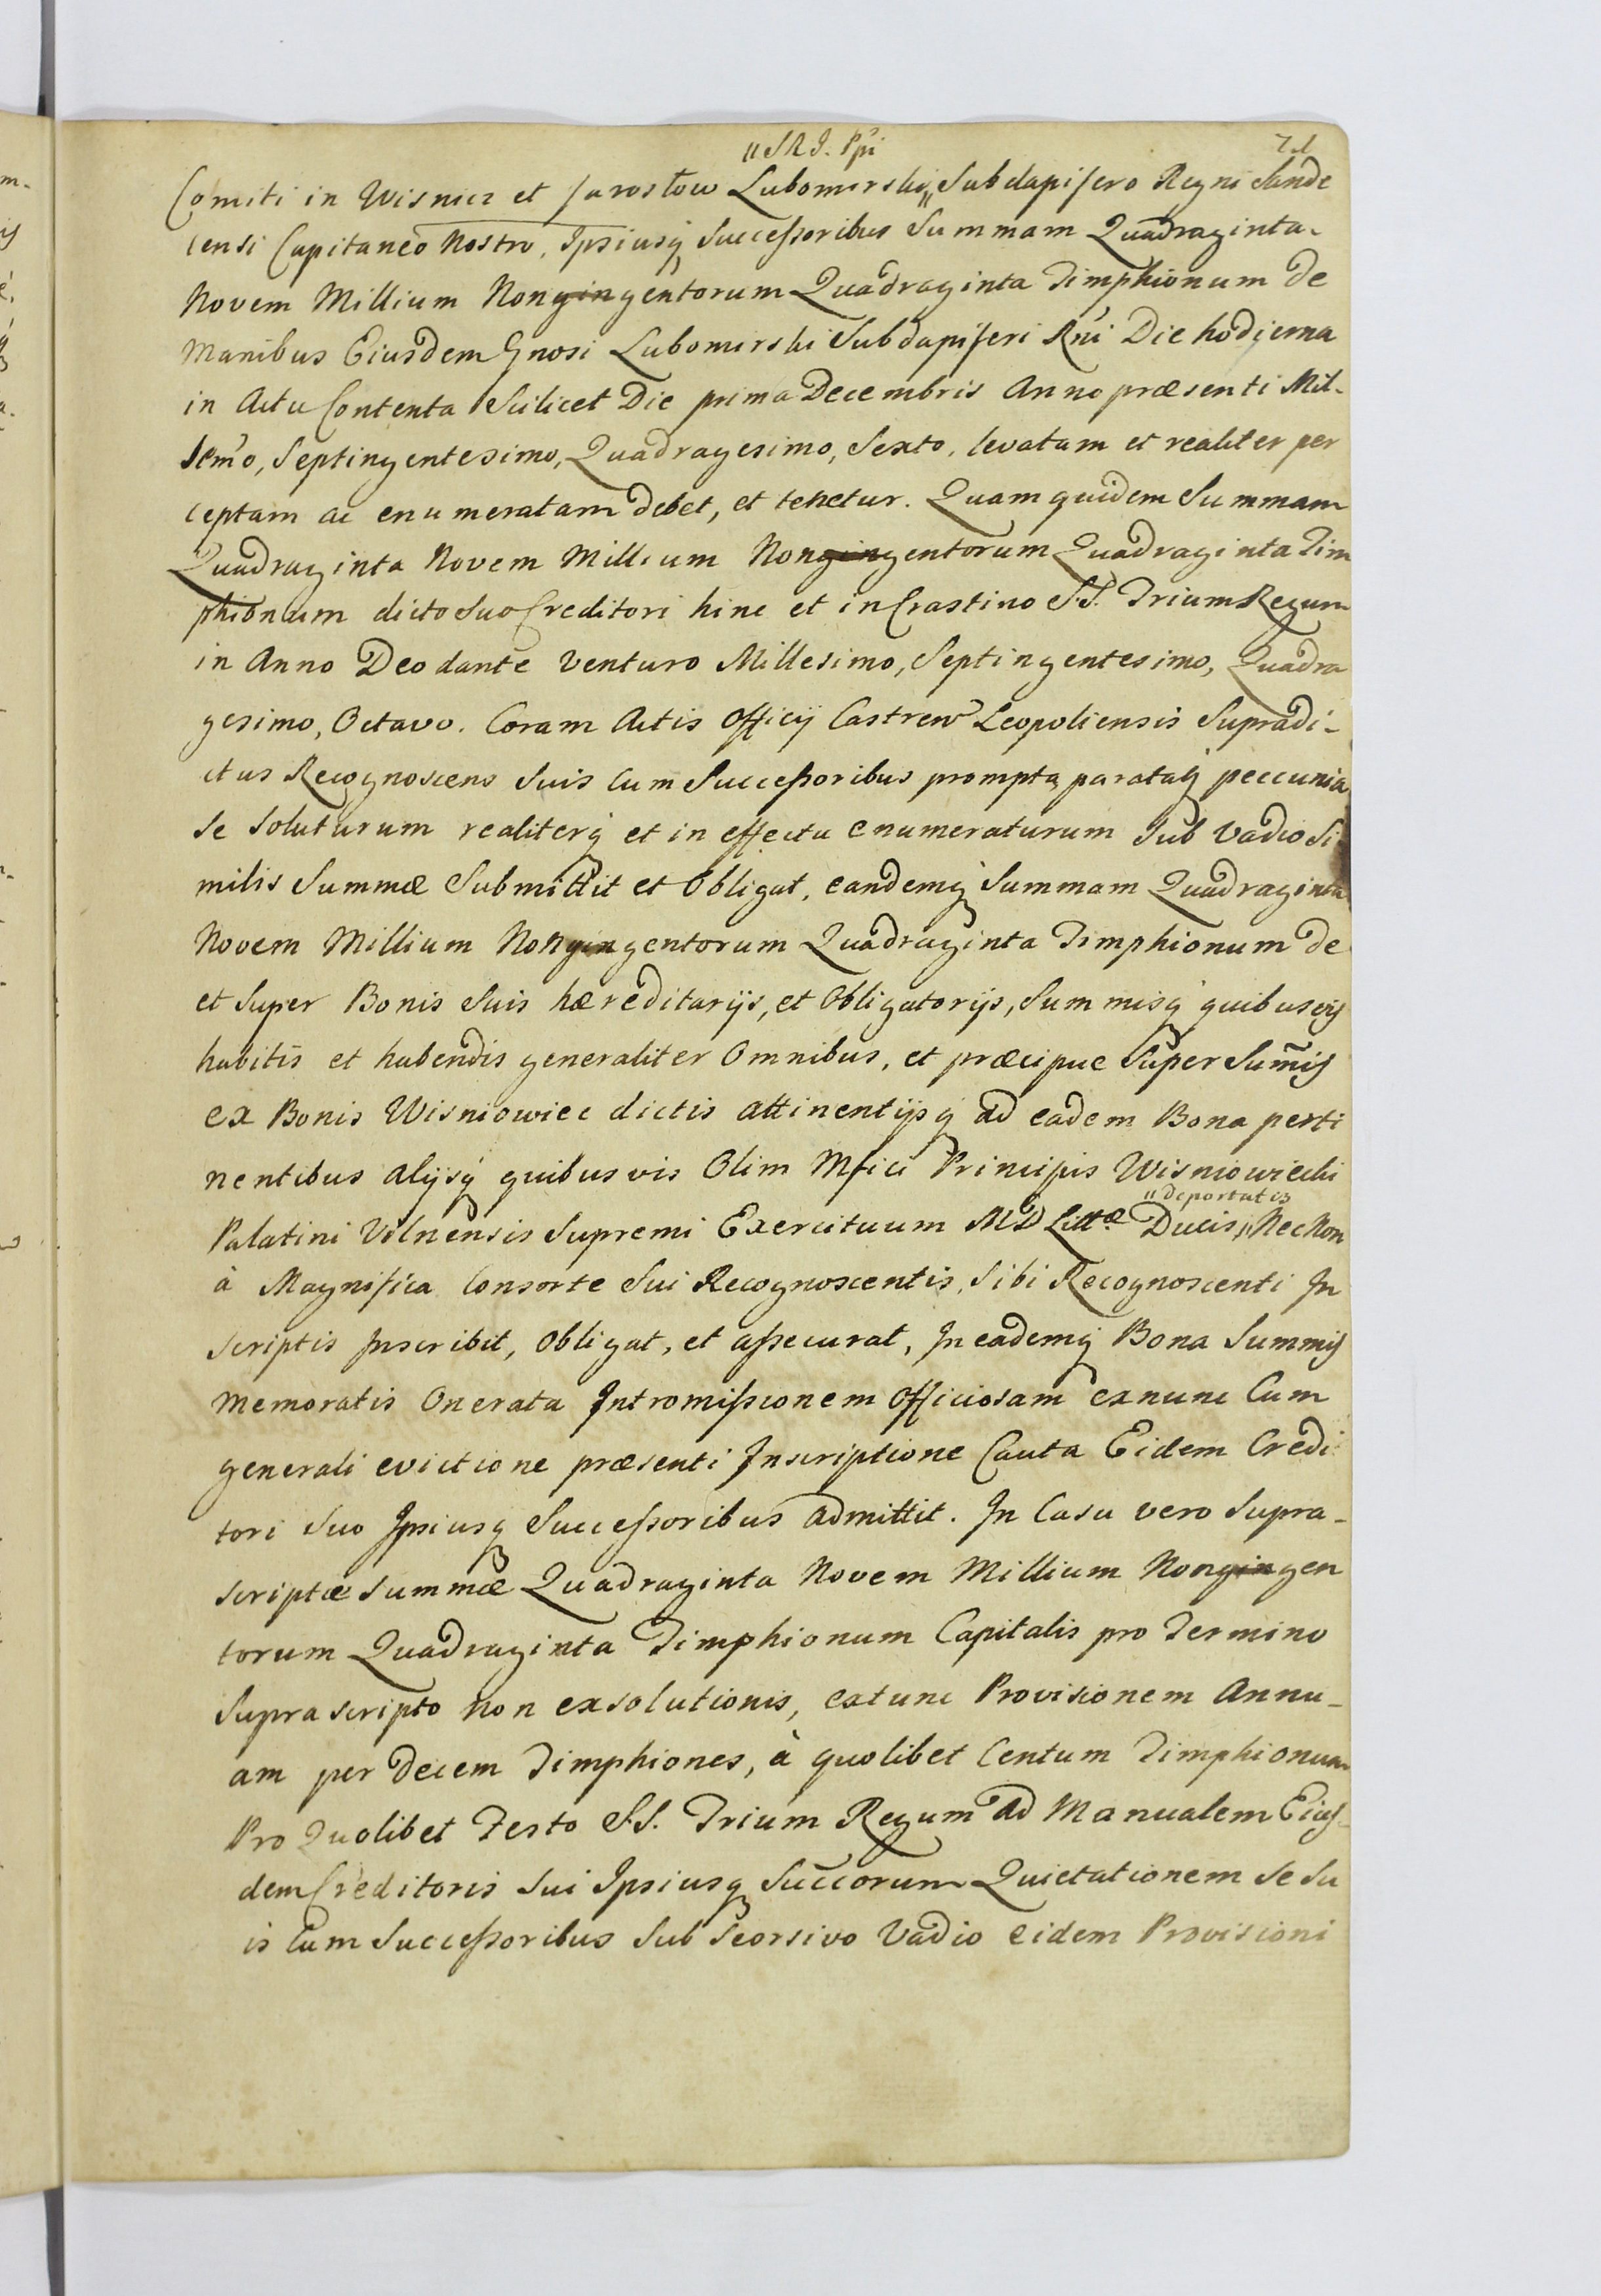 "S R I. Ppi
Comiti in Wisnicz et Jarosłow Lubomirski,, Subdapifero Regni Sande
censi Capitaneo Nostro, Ipsiusq Successoribus Summam Quadraginta
Novem Millium Nongingentorum Quadraginta Timphionum de
Manibus Eiusdem Gnosi Lubomirski Subdapiferi Rni Die hodierna
in Actu Contenta Scilicet Die prima Decembris Anno præsenti Mil-
semo, Septingentesimo, Quadragesimo, Sexto, levatam et realiter per
ceptam ac enumeratam debet, et tenetur. Quam quidem Summam
Quadraginta Novem Millium Nongingentorum Quadraginta Tim
phionum dicto suo Creditori hinc et in Crastino S.S. Trium Regum
in Anno Deo dante venturo Millesimo, Septingentesimo, Quadra
gesimo, Octavo. Coram Actis Officij Castren Leopoliensis Supradi-
ctus Recognoscens suis Cum Successoribus prompta parataq peccunia
se soluturum realiterq et in effectu enumeraturum sub vadio Si
milis Summæ Submittit et Obligat, eandemq Summam Quadraginta
Novem Millium Nongingentorum Quadraginta Timphionum de
et Super Bonis Suis hæreditarijs, et Obligatorijs, Summisq quibusvis
habitis et habendis generaliter Omnibus, et præcipue Super Summis
ex Bonis Wisniowiec dictis attinentijsq ad eadem Bona perti
nentibus alijsq quibusvis Olim Mfici Principis Wisniowiecki
"deportatis
Palatini Vilnensis Supremi Exercituum M D Littæ Ducis,, Nec Non
à Magnifica Consorte Sui Recognoscentis, Sibi Recognoscenti In
scriptis Inscribit, Obligat, et assecurat, In eademq Bona Summis
memoratis Onerata Intromissionem Officiosam ex nunc Cum
generali evictione præsenti Inscriptione Cauta Eidem Credi
tori suo Ipsiusq Successoribus admittit. In Casu vero Supra-
scriptæ Summæ Quadraginta Novem Millium Nongingen
torum Quadraginta Timphionum Capitalis pro Termino
Supra scripto non exsolutionis, extunc Provisionem Annu-
am per Decem Timphiones, à quolibet Centum Timphionum
Pro Quolibet Festo S.S. Trium Regum ad Manualem Eius-
dem Creditoris sui Ipsiusq Succorum Quietationem se su
is Cum Successoribus Sub Seorsivo Vadio eidem Provisioni